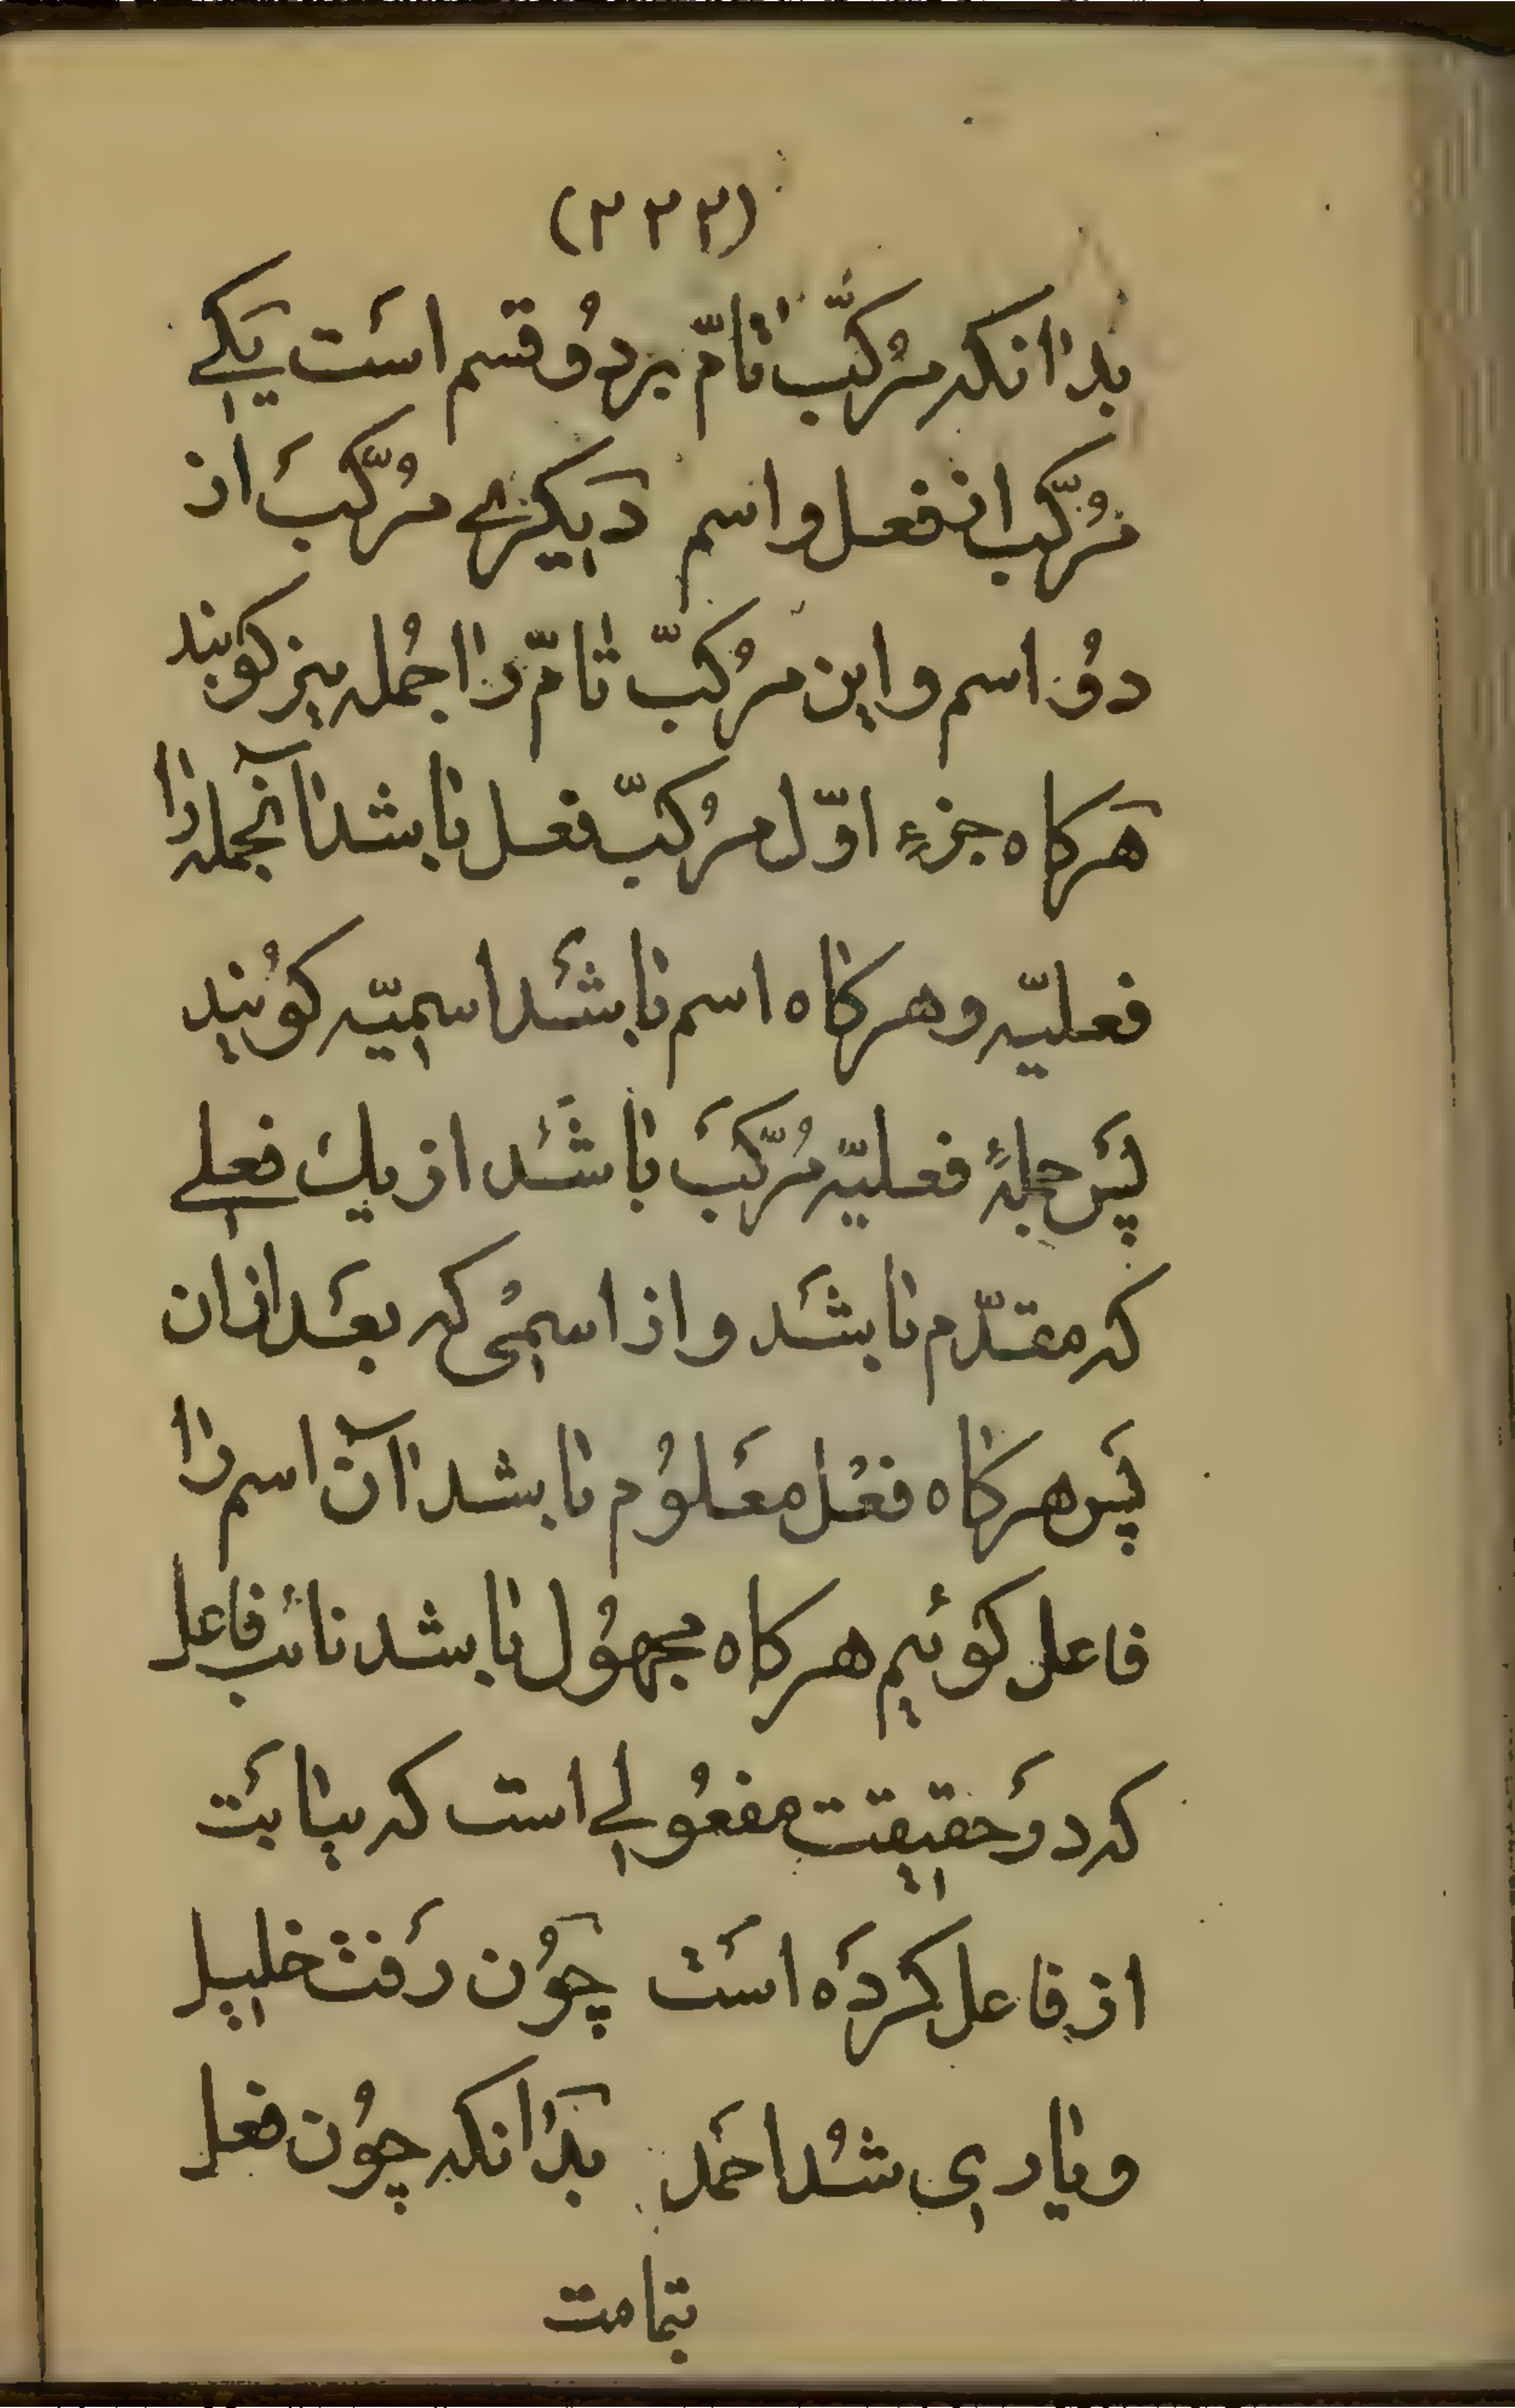 (۲۳۳)
بدانکه مُرکَّب تامّ بر دُو قسم اسَت یَکے
مُرکَّب از فعل واسم دیکَرے مُرکَّب از
دُو اسم واین مرُکبّ تامّ را جُمله نیز کوُیند
هَرکاه جزءِ اوّل مرُکبّ فعل باشد آنجمله را
فعلیّه وهرکاه اسم باشَد اسمیّه کوُیند
پَس جملهٔ فعلیّه مُرکّبَ باشَد از یك فعلے
که مقدّم باشَد واز اسمی که بعَد ازان
پَس هرکاه فعْل معَلوُم باشد آن اسم را
فاعل کوئیم هرکاه مجهُول باشد نائب فاعل
که در حَقیقت مفعُولے است که نیابَت
از فاعل کردَه اسَت چوُن رَفت خلیل
ویاری شُد احمَد بدَانکه چوُن فعل
بتمامت